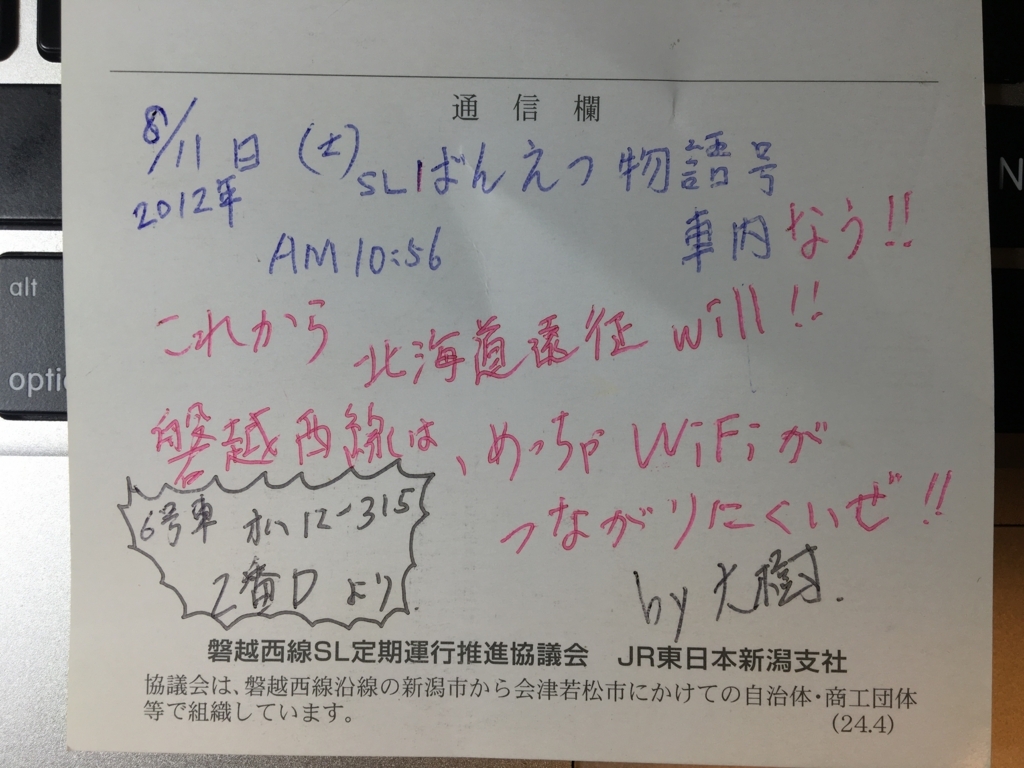 通信欄
8/11日(土)SLばんえつ物語号
2012年
車内なう!!
AM10:56
これから北海道遠征will!!
磐越西線は、めっちゃWiFiが
つながりにくいぜ!!
6号車 オハ12-315
2番D より.
by大樹.
磐越西線SL定期運行推進協議会 JR東日本新潟支社
協議会は、磐越西線沿線の新潟市から会津若松市にかけての自治体・商工団体
等で組織しています。
(24.4)
alt
optio
N